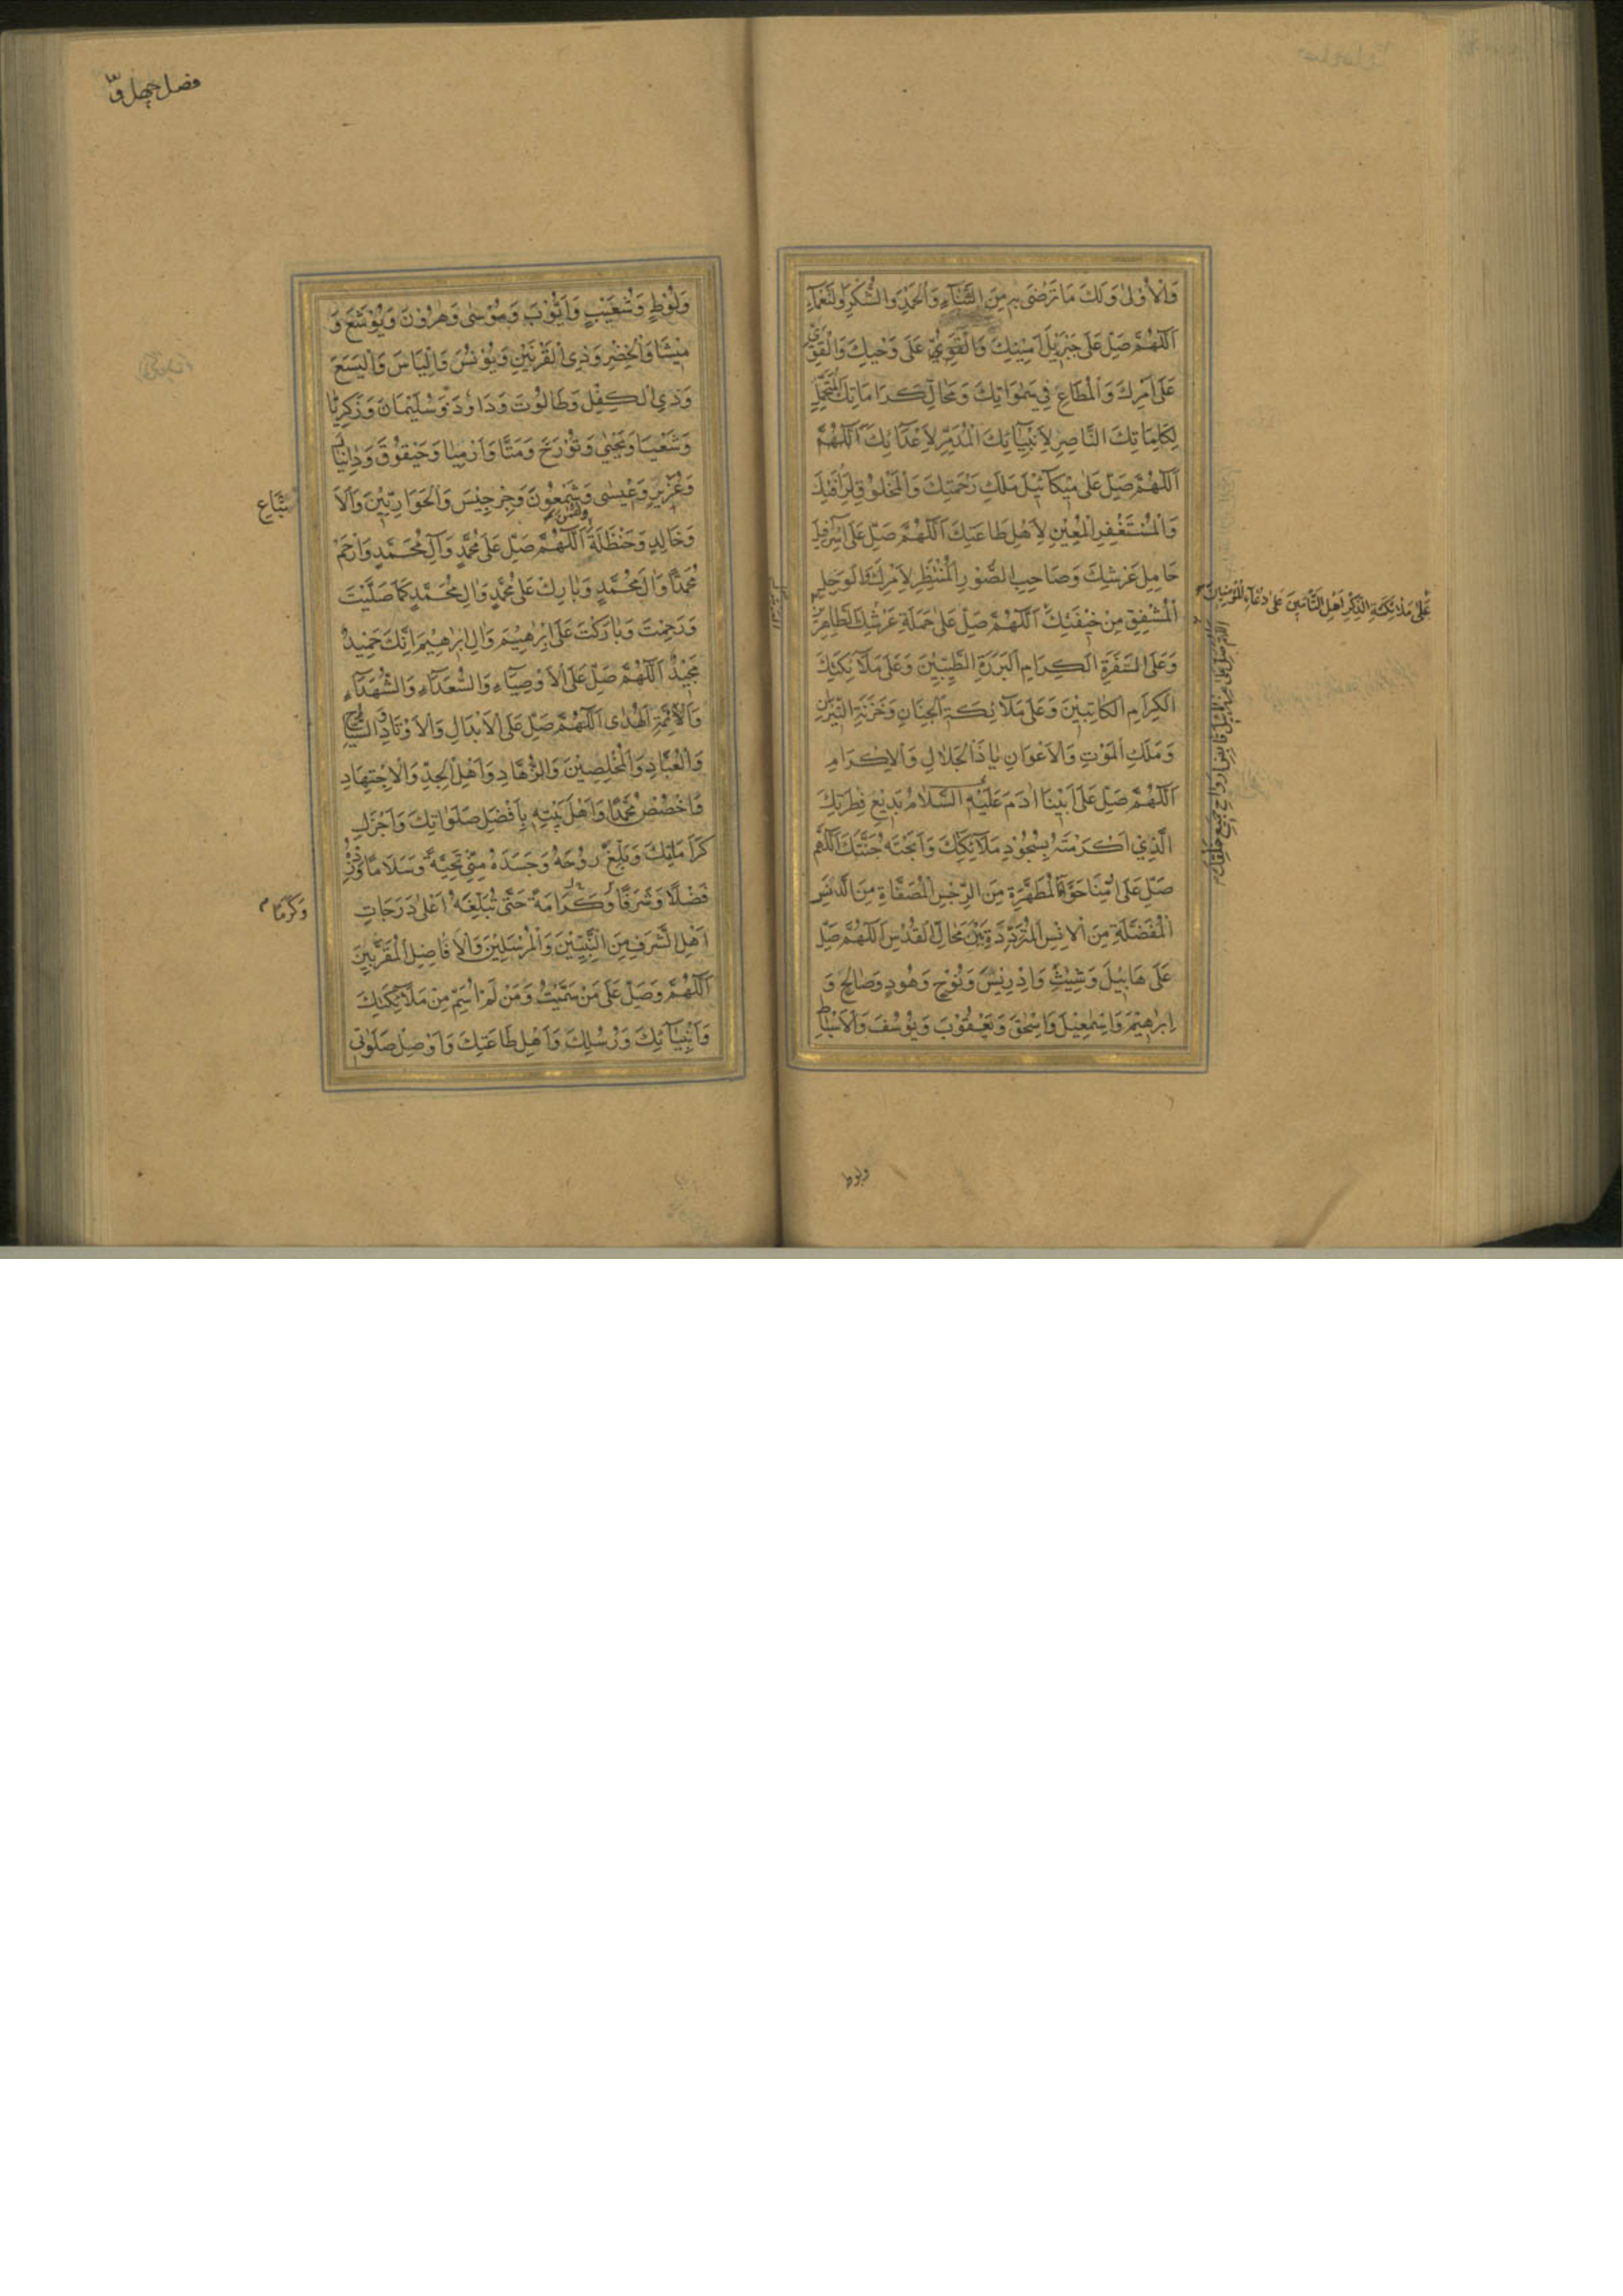 وَالْاُوْلٰى وَلَكَ مَا تَرْضٰى بِهِ مِنَ الثَّنَاءِ وَالْحَمْدِ وَالشُّكْرِ وَالنَّعْمَاءِ
اَللّٰهُمَّ صَلِّ عَلٰى جَبْرَئِيْلَ اَمِيْنِكَ وَالْقَوِيِّ عَلٰى وَحْيِكَ وَالْقَوِيِّ
عَلٰى اَمْرِكَ وَالْمُطَاعِ فِيْ سَمٰوَاتِكَ وَمَحَالِّ كَرَامَاتِكَ الْمُتَحَمِّلِ
لِكَلِمَاتِكَ النَّاصِرِ لِاَنْبِيَائِكَ الْمُدَمِّرِ لِاَعْدَائِكَ اَللّٰهُمَّ
اَللّٰهُمَّ صَلِّ عَلٰى مِيْكَائِيْلَ مَلَكِ رَحْمَتِكَ وَالْمَخْلُوْقِ لِرَأْفَتِكَ
وَالْمُسْتَغْفِرِ الْمُعِيْنِ لِاَهْلِ طَاعَتِكَ اَللّٰهُمَّ صَلِّ عَلٰى اِسْرَافِيْلَ
حَامِلِ عَرْشِكَ وَصَاحِبِ الصُّوْرِ الْمُنْتَظِرِ لِاَمْرِكَ وَالْوَجِلِ
الْمُشْفِقِ مِنْ خِيْفَتِكَ اَللّٰهُمَّ صَلِّ عَلٰى حَمَلَةِ عَرْشِكَ الطَّاهِرِيْنَ
وَعَلَى السَّفَرَةِ الْكِرَامِ الْبَرَرَةِ الطَّيِّبِيْنَ وَعَلٰى مَلَائِكَتِكَ
الْكِرَامِ الْكَاتِبِيْنَ وَعَلٰى مَلَائِكَةِ الْجِنَانِ وَخَزَنَةِ النِّيْرَانِ
وَمَلَكِ الْمَوْتِ وَالْاَعْوَانِ يَا ذَا الْجَلَالِ وَالْاِكْرَامِ
اَللّٰهُمَّ صَلِّ عَلٰى اَبِيْنَا اٰدَمَ عَلَيْهِ السَّلَامُ بَدِيْعِ فِطْرَتِكَ
الَّذِيْ اَكْرَمْتَهُ بِسُجُوْدِ مَلَائِكَتِكَ وَاَبَحْتَهُ جَنَّتَكَ اَللّٰهُمَّ
صَلِّ عَلٰى اُمِّنَا حَوَّاءَ الْمُطَهَّرَةِ مِنَ الرِّجْسِ الْمُصَفَّاةِ مِنَ الدَّنَسِ
الْمُفَضَّلَةِ مِنَ الْاِنْسِ الْمُتَرَدِّدَةِ بَيْنَ مَحَالِّ الْقُدْسِ اَللّٰهُمَّ صَلِّ
عَلٰى هَابِيْلَ وَشِيْثٍ وَاِدْرِيْسَ وَنُوْحٍ وَهُوْدٍ وَصَالِحٍ وَ
اِبْرٰهِيْمَ وَاِسْمٰعِيْلَ وَاِسْحٰقَ وَيَعْقُوْبَ وَيُوْسُفَ وَالْاَسْبَاطِ
عَلٰى مَلَائِكَةِ الذِّكْرِ اَهْلِ التَّأْمِيْنِ عَلٰى دُعَاءِ الْمُؤْمِنِيْنَ
ولوط
فصل چهل و
وَلُوْطٍ وَشُعَيْبٍ وَاَيُّوْبَ وَمُوْسٰى وَهٰرُوْنَ وَيُوْشَعَ وَ
مِيْشَا وَالْخِضْرِ وَذِى الْقَرْنَيْنِ وَيُوْنُسَ وَاِلْيَاسَ وَالْيَسَعَ
وَذِى الْكِفْلِ وَطَالُوْتَ وَدَاوُدَ وَسُلَيْمَانَ وَزَكَرِيَّا
وَشَعْيَا وَيَحْيٰى وَتُوْرَخَ وَمَتَّا وَاَرْمِيَا وَحَيْقُوْقَ وَدَانِيَالَ
وَعُزَيْرٍ وَعِيْسٰى وَشَمْعُوْنَ وَجِرْجِيْسَ وَالْحَوَارِيِّيْنَ وَالْاَ
تْبَاعِ
وَخَالِدٍ وَحَنْظَلَةَ اَللّٰهُمَّ صَلِّ عَلٰى مُحَمَّدٍ وَاٰلِ مُحَمَّدٍ وَارْحَمْ
مُحَمَّدًا وَاٰلَ مُحَمَّدٍ وَبَارِكْ عَلٰى مُحَمَّدٍ وَاٰلِ مُحَمَّدٍ كَمَا صَلَّيْتَ
وَرَحِمْتَ وَبَارَكْتَ عَلٰى اِبْرٰهِيْمَ وَاٰلِ اِبْرٰهِيْمَ اِنَّكَ حَمِيْدٌ
مَجِيْدٌ اَللّٰهُمَّ صَلِّ عَلَى الْاَوْصِيَاءِ وَالسُّعَدَاءِ وَالشُّهَدَاءِ
وَالْاَئِمَّةِ الْهُدٰى اَللّٰهُمَّ صَلِّ عَلَى الْاَبْدَالِ وَالْاَوْتَادِ السُّيَّاحِ
وَالْعُبَّادِ وَالْمُخْلِصِيْنَ وَالزُّهَّادِ وَاَهْلِ الْجِدِّ وَالْاِجْتِهَادِ
وَاخْصُصْ مُحَمَّدًا وَاَهْلَ بَيْتِهِ بِاَفْضَلِ صَلَوَاتِكَ وَاَجْزَلِ
كَرَامَاتِكَ وَبَلِّغْ رُوْحَهُ وَجَسَدَهُ مِنِّيْ تَحِيَّةً وَسَلَامًا وَزِدْهُ
فَضْلًا وَشَرَفًا وَكَرَامَةً حَتّٰى تُبَلِّغَهُ اَعْلٰى دَرَجَاتِ
وَكَرَمًا
اَهْلِ الشَّرَفِ مِنَ النَّبِيِّيْنَ وَالْمُرْسَلِيْنَ وَالْاَفَاضِلِ الْمُقَرَّبِيْنَ
اَللّٰهُمَّ وَصَلِّ عَلٰى مَنْ سَمَّيْتُ وَمَنْ لَمْ اُسَمِّ مِنْ مَلَائِكَتِكَ
وَاَنْبِيَائِكَ وَرُسُلِكَ وَاَهْلِ طَاعَتِكَ وَاَوْصِلْ صَلَوَاتِيْ